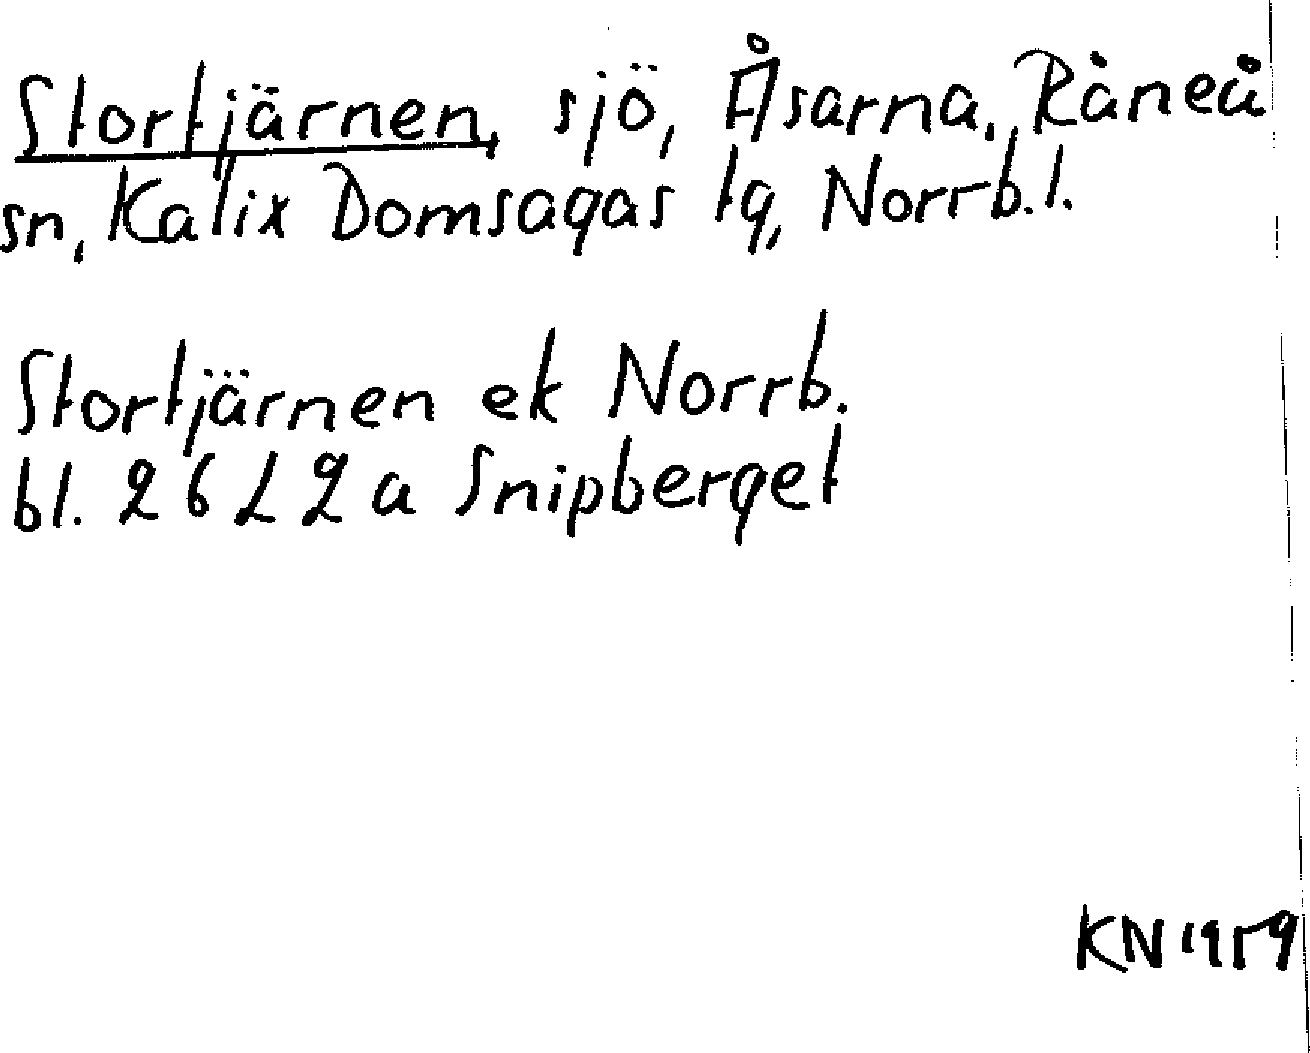 Stortjärnen, sjö, Åsarna, Råneå
sn, Kalix Domsagas tg, Norrb. l.
Stortjärnen ek Norrb.
bl. 26 L 2 a Snipberget
KN 1959